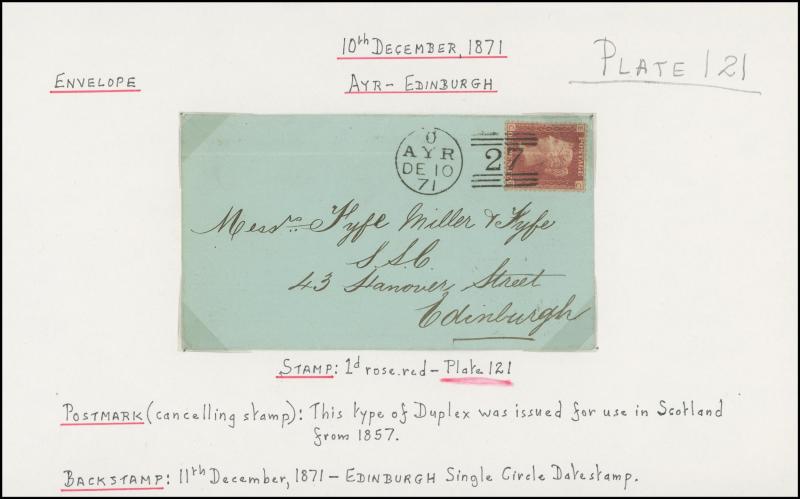 10th DECEMBER, 1871
PLATE 121
ENVELOPE
AYR - EDINBURGH
O
AYR
DE 10
71
27
POSTAGE
Messrs. Fyfe Miller & Fyfe
S.S.C
43 Hanover Street
Edinburgh
STAMP: 1d rose.red - Plate 121
POSTMARK (cancelling stamp): This type of Duplex was issued for use in Scotland
from 1857.
BACKSTAMP: 11th December, 1871 - EDINBURGH Single Circle Datestamp.